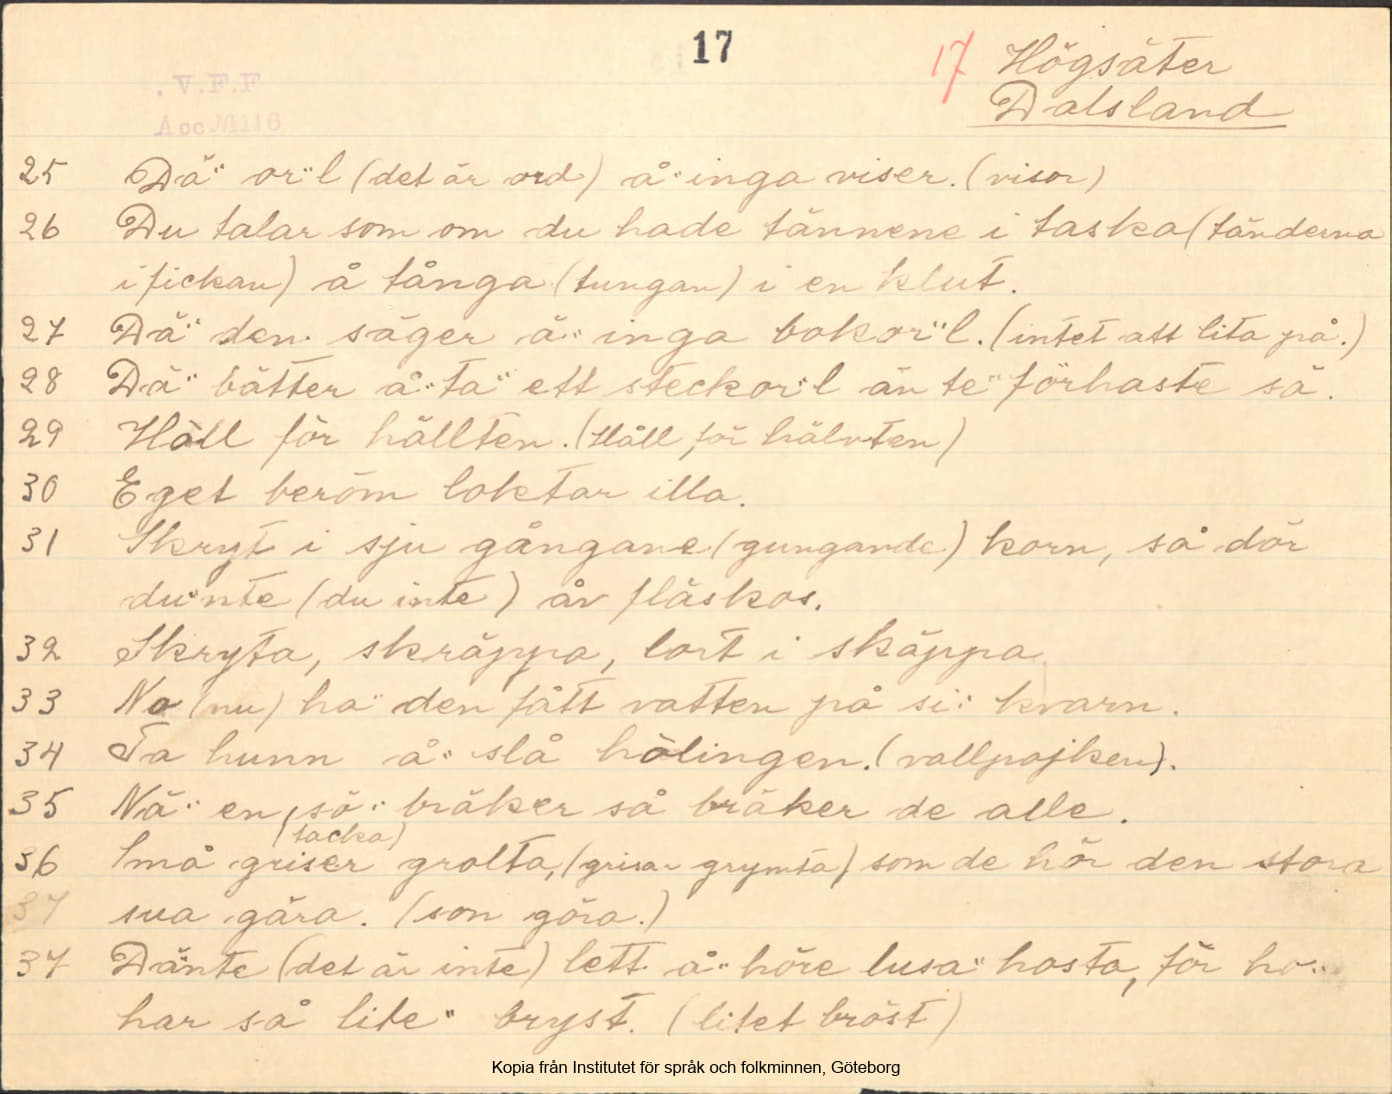 17
17 Högsäter
Dalsland
V.F.F
Acc № 116
25 Dä" or"l (det är ord) å" inga viser. (visor)
26 Du talar som om du hade tännene i taska (tänderna
i fickan) å tånga (tungan) i en klut.
27 Dä" den säger ä" inga bokor"l. (intet att lita på.)
28 Dä" bätter å" ta" ett steckor"l än te" förhaste sä.
29 Håll för hällten. (Håll för hälvten)
30 Eget beröm loktar illa.
31 Skryt i sju gångane (gungande) korn, så dör
du"nte (du inte) åv fläskos.
32 Skryta, skräppa, lort i skäppa
33 No (nu) ha" den fått vatten på si" kvarn.
34 Ta hunn å" slå hölingen. (vallpojken).
35 Nä" en sö" bräker så bräker de alle.
(tacka)
36 Små griser grolta, (grisar grymta) som de hör den stora
37 sua gära. (son göra.)
37 Dä"nte (det är inte) lett å" höre lusa" hosta, för ho"
har så lite" bryst. (litet bröst)
Kopia från Institutet för språk och folkminnen, Göteborg